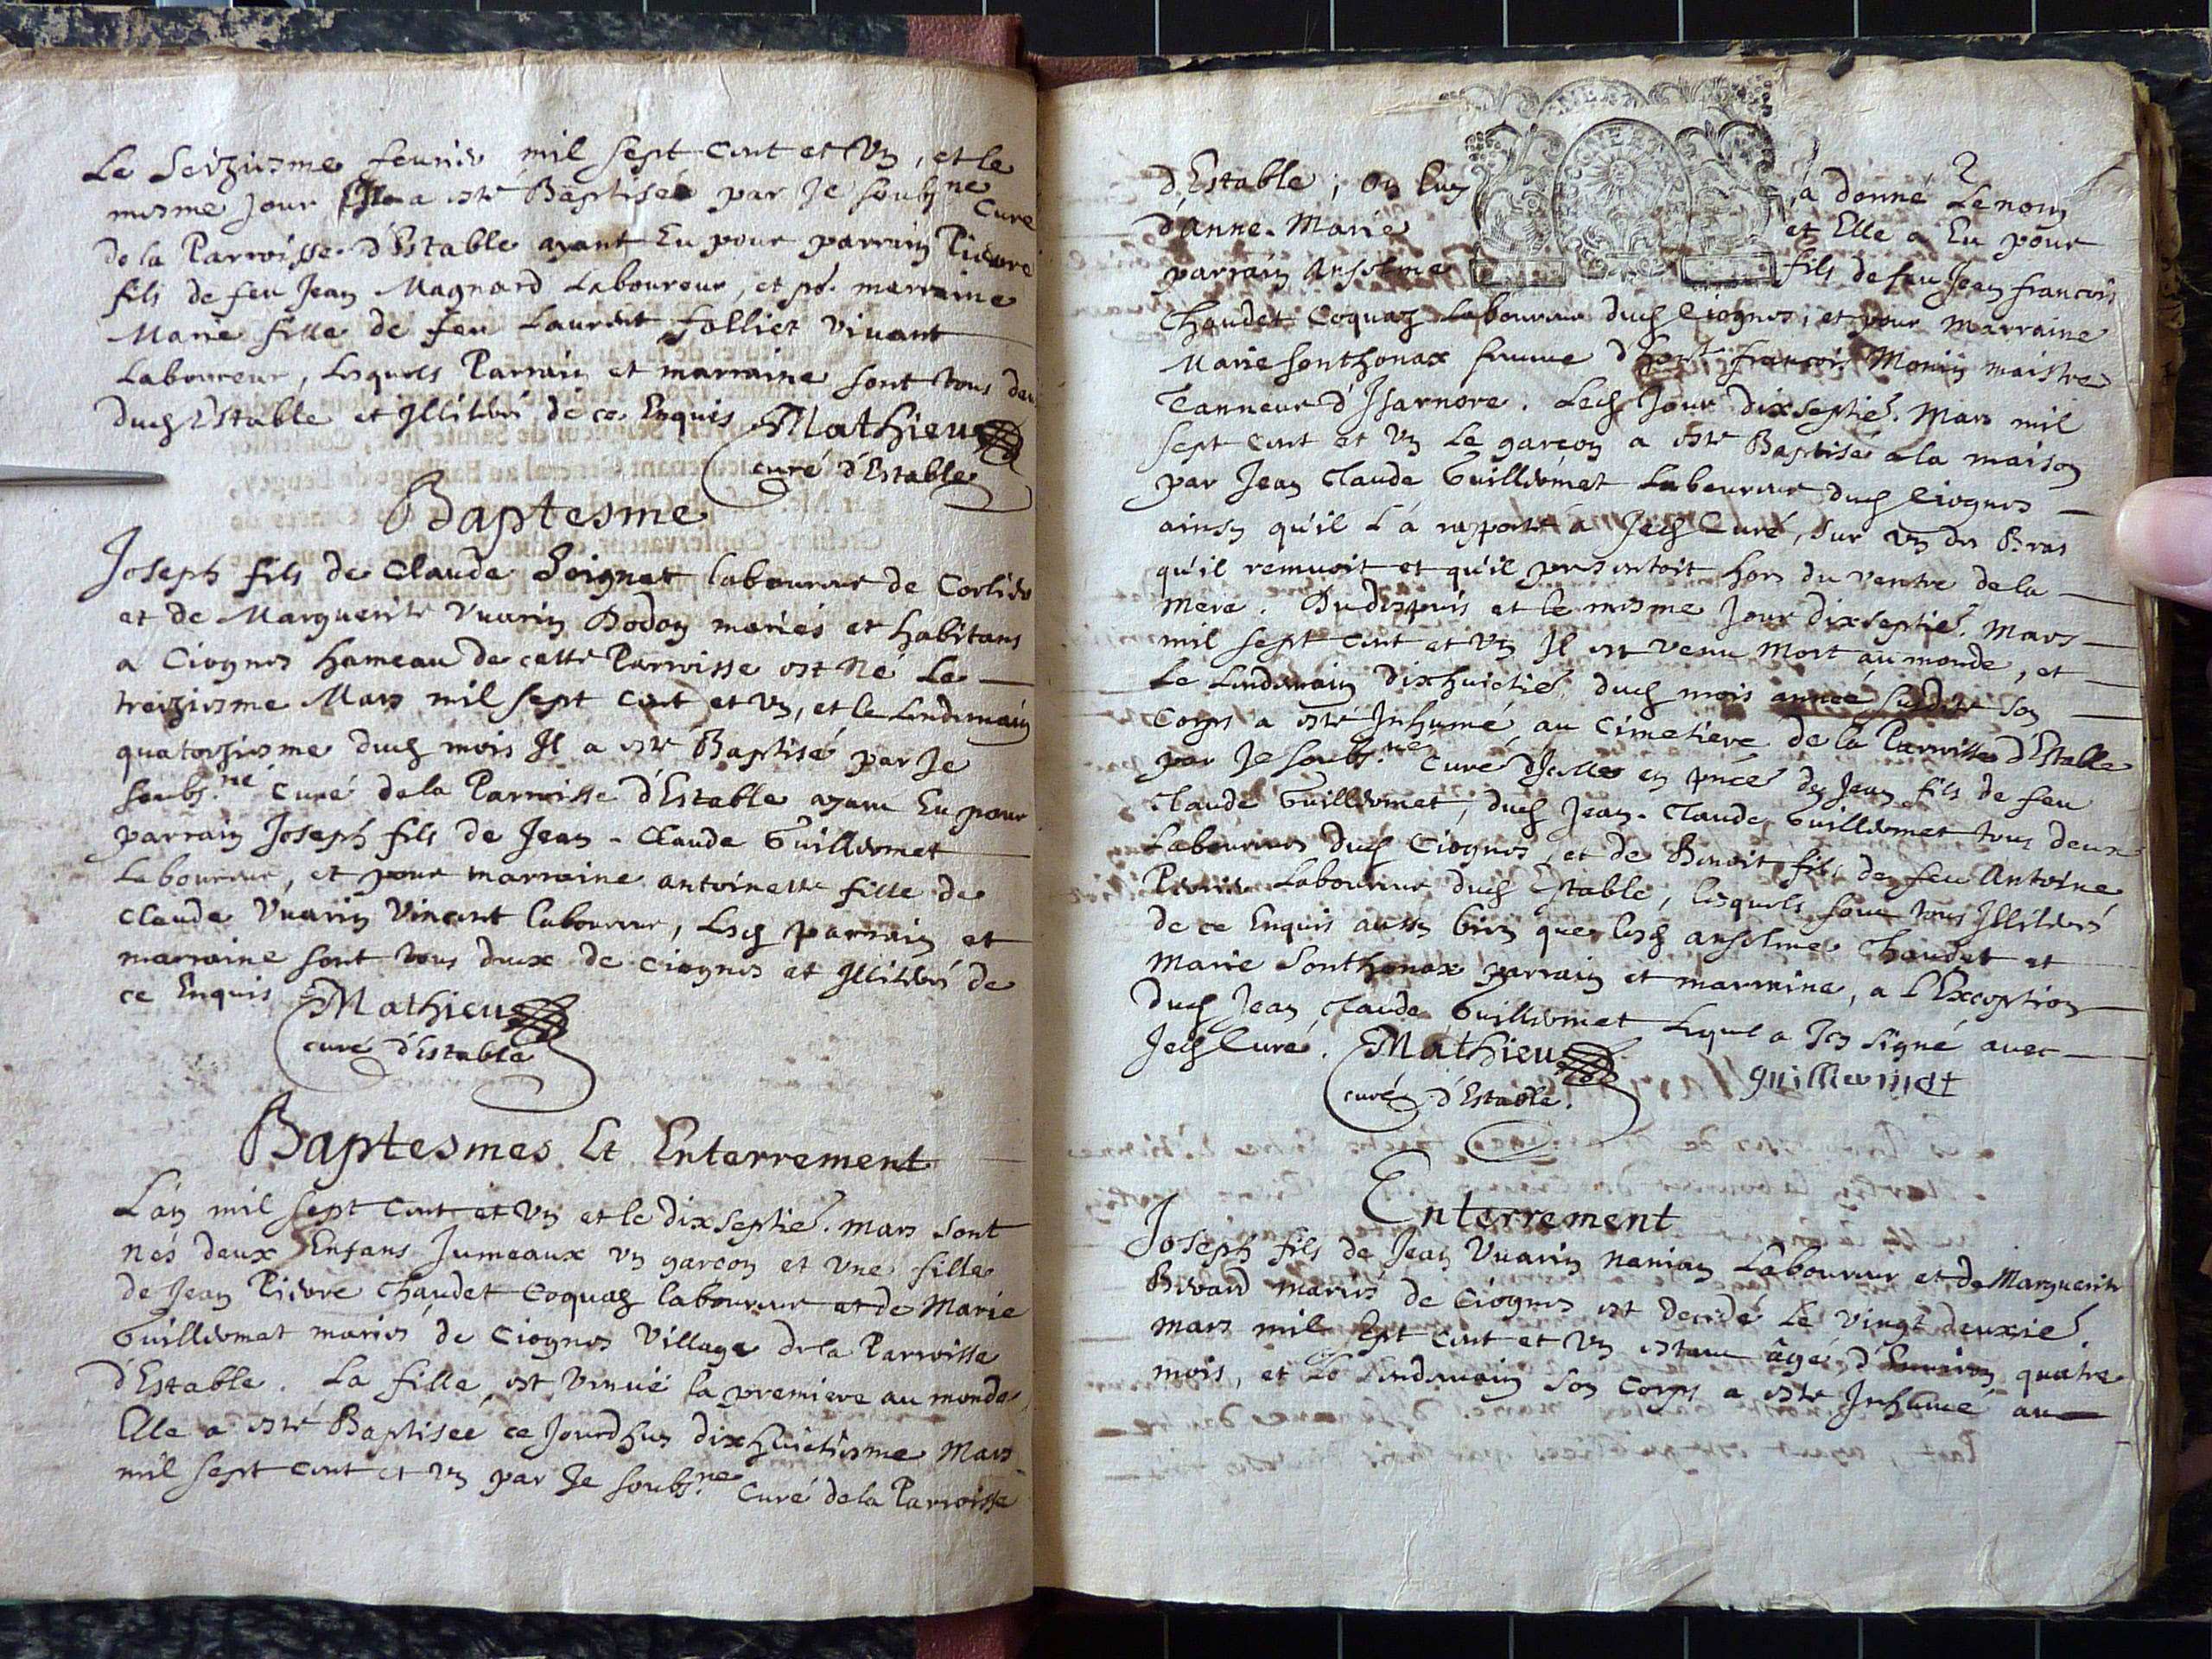 Le Seiziesme feurier mil sept cent et Vn, et le
mesme Jour Elle a esté Baptiseé par Je soubs.né Curé
de la Parroisse d'Estable ayant Eu pour parrain Pierre
fils de feu Jean Magnard Laboureur, et po.r marraine
Marie fille de feu Laurent folliet vivant
Laboureur, Lesquels Parrain et marraine sont tous deux
dud Estable et Illiterés de ce Enquis Mathieu
curé d'Estable
Baptesme
Joseph fils de Claude Poignet laboureur de Corlier
et de Marguerite Vuarin Dodon mariés et habitans
a Ciognes hameau de cette Parroisse est Né Le
treiziesme Mars mil sept cent et Vn, et le Lendemain
quatorziesme dud mois Il a esté Baptisé par Je
soubs.né Curé de la Parroisse d'Estable ayant Eu pour
parrain Joseph fils de Jean-Claude Guillermet
Laboureur, et pour marraine antoinette fille de
Claude Vuarin Vincent laboureur, Lesd parrain et
marraine sont tous deux de ciognes et Illiterés de
ce Enquis Mathieu
curé d'Estable
Baptesmes Et Enterrement
L'an mil sept Cent et Vn et le dixseptie. mars sont
nés deux Enfans Jumeaux vn garcon et Vne fille
de Jean Pierre Chaudet Coquaz laboureur et de Marie
Guillermet mariés de Ciognes Village de la Parroisse
d'Estable. La fille est Venüe la premiere au monde,
Elle a esté Baptiseé ce Jourdhuy dixhuictiesme Mars
mil sept cent et Vn par Je soubs.né Curé de la Parroisse
2
d'Estable; On luy a donné Le nom
d'Anne-Marie et Elle a Eu pour
parrain Anselme fils de feu Jean francois
Chaudet Coquaz Laboureur dud Ciognes, et pour marraine
Marie Sonthonax femme d'hon.t francois Monin maistre
Tanneur d'Isarnore. Led Jour dixseptie. Mars mil
sept cent et Vn Le garcon a esté Baptisé a la maison
par Jean Claude Guillermet Laboureur dud Ciognes
ainsy qu'il L'à raporté à Jed Curé, sur vn des Bras
qu'il remuoit et qu'il presentoit hors du ventre de la
mere. Du depuis et le mesme Jour dixseptie. Mars
mil sept cent et Vn Il est venu Mort au monde, et
Le Lendemain dixhuictie. dud mois anneé susdite son
Corps a esté Inhumé au Cimetiere de la Parroisse d'Estable
par Je soubs.né Curé d'Icelle en pnce de Jean fils de feu
Claude Guillermet, dud Jean-Claude Guillermet tous deux
Laboureurs dud Ciognes, et de Benoit fils de feu Antoine
Laboureur dud Estable, lesquels sont tous Illiterés
de ce Enquis aussy bien que lesd anselme Chaudet et
Marie Sonthonax parrain et marraine, a L'Exception
dud Jean Claude Guillermet Lequel a Icy signé avec
Jed Curé. Mathieu
curé d'Estable. guilliermet
Enterrement
Joseph fils de Jean Vuarin Laboureur et de Marguerite
mariés de Ciognes est decedé Le vingt deuxie.
mars mil sept cent et Vn estant âgé d'Environ quatre
mois, et Le Lendemain son Corps a esté Inhumé au